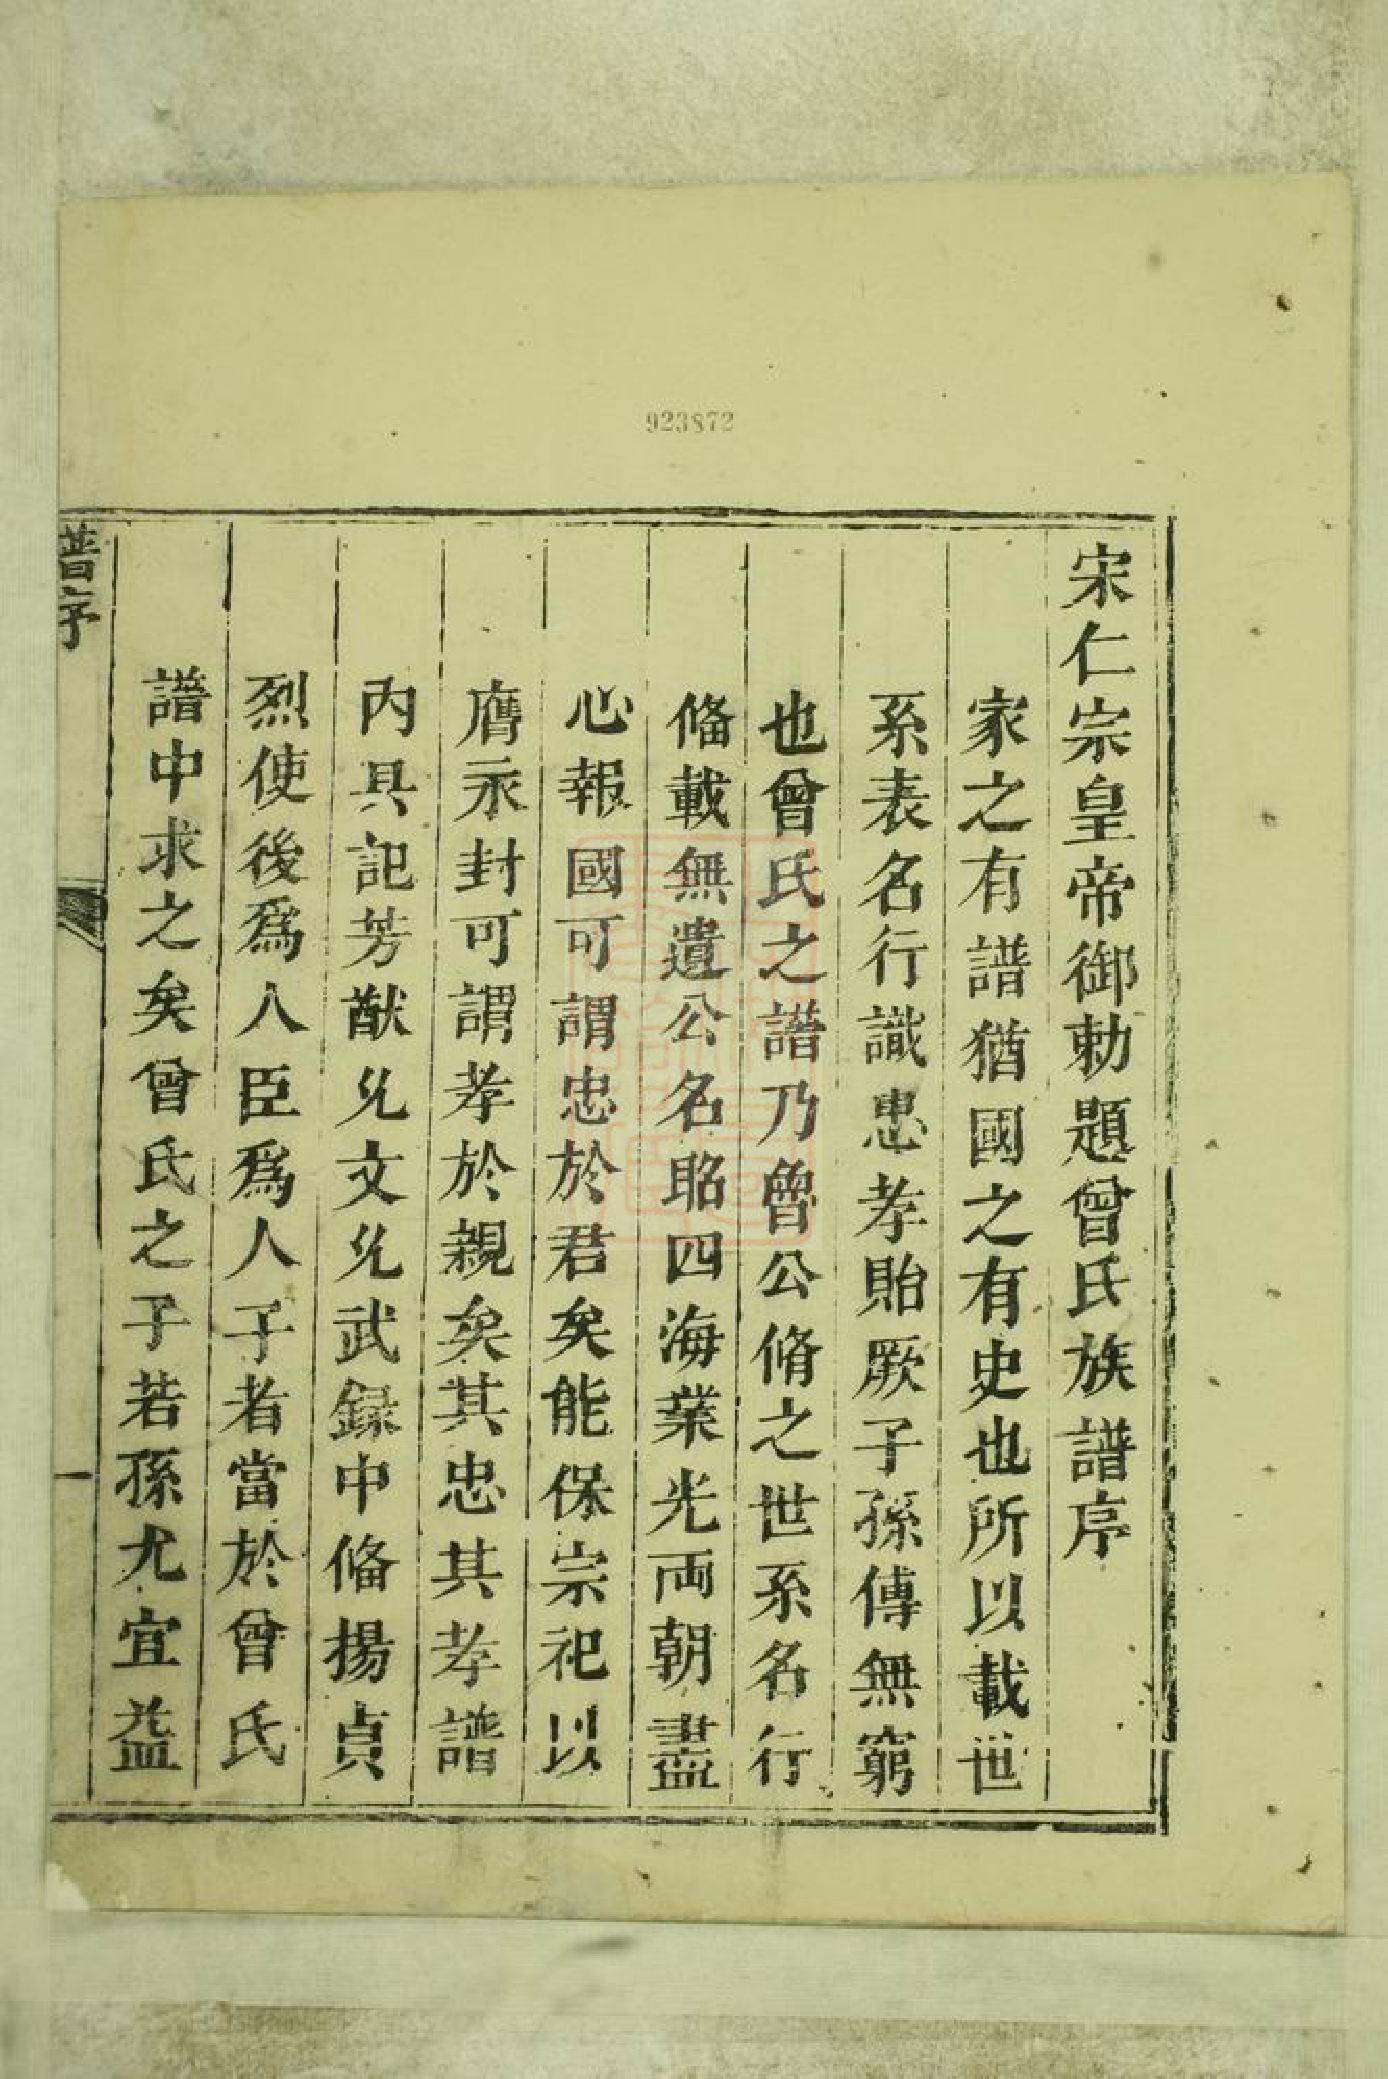 923872
宋仁宗皇帝御勅題曾氏族譜序
家之有譜猶國之有史也所以載世
系表名行識忠孝貽厥子孫傳無窮
也曾氏之譜乃魯公脩之世系名行
俻載無遺公名昭四海業光両朝盡
心報國可謂忠於君矣能保宗祀以
膺永封可謂孝於親矣其忠其孝譜
内具記芳猷允文允武録中俻揚貞
烈使後爲人臣爲人子者當於曾氏
譜中求之矣曾氏之子若孫尤宜益
譜序
一